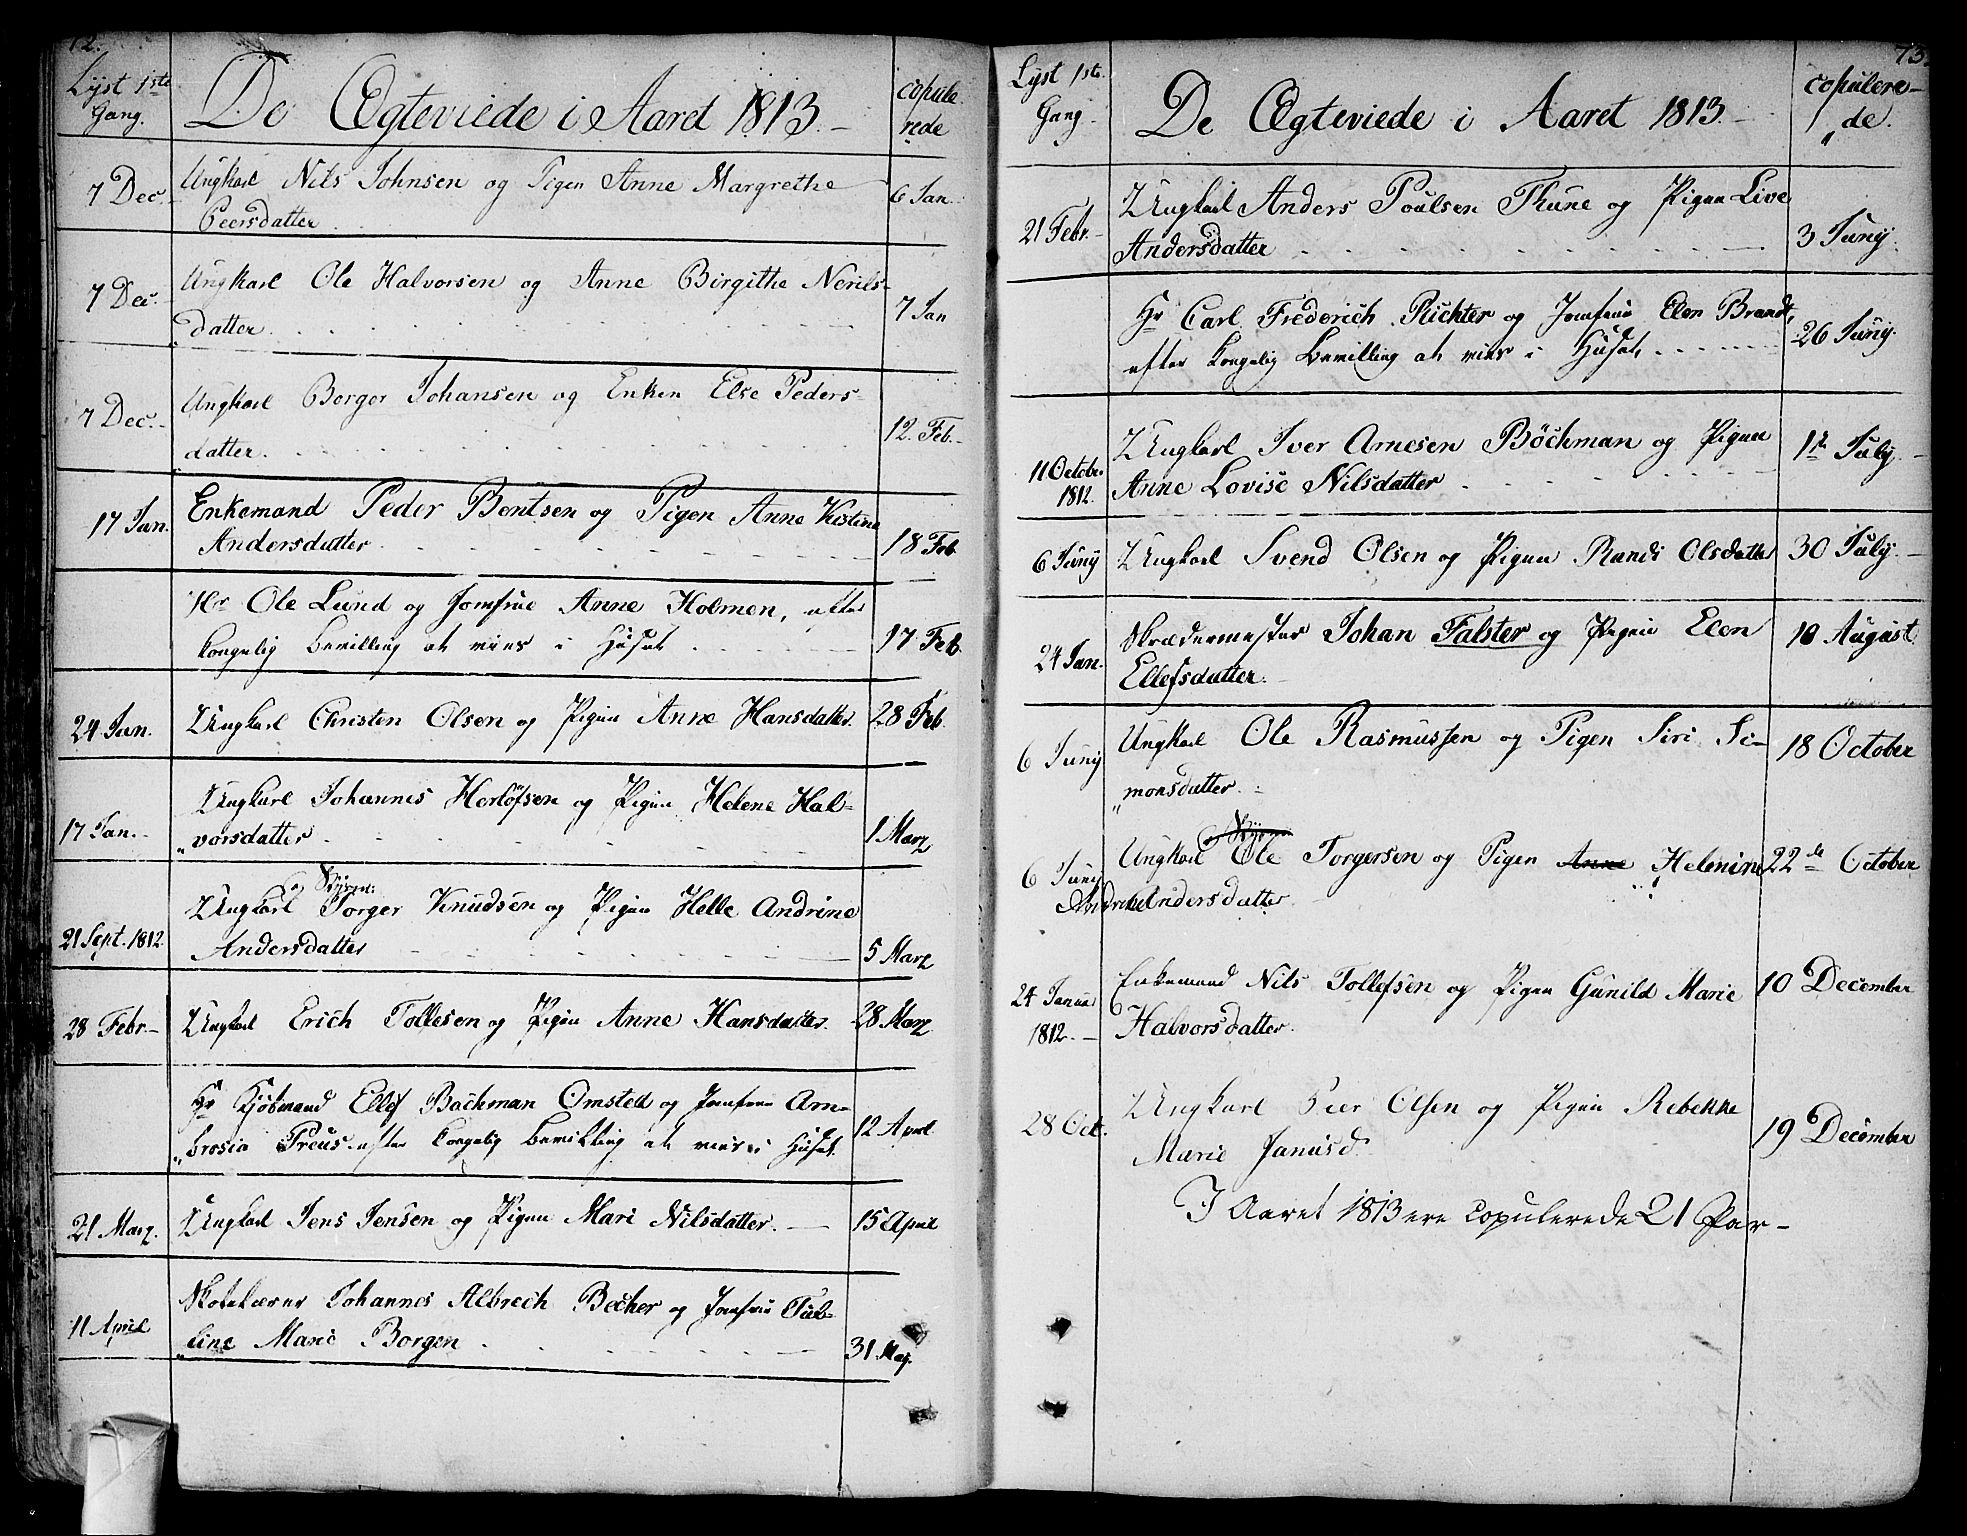 72.
Lyst 1ste
Gang.
De Ægteviede i Aaret 1813.
copule
rede
7 Dec.
Ungkarl Nils Johnsen og Pigen Anne Margrethe
Peersdatter
6 Jan.
7 Dec.
Ungkarl Ole Halvorsen og Anne Birgithe Nerils-
datter
7 Jan
7 Dec.
Ungkarl Borger Johansen og Enken Else Peders-
datter.
12. Feb.
17 Jan.
Enkemand Peder Bentsen og Pigen Anne Kistine
Andersdatter
18 Feb
Hr Ole Lund og Jomfrue Anne Holmen, efter
kongelig Bevilling at vies i Huset
17 Feb.
24 Jan.
Ungkarl Christen Olsen og Pigen Anne Hansdatter
28 Feb.
17 Jan.
Ungkarl Johannes Herlofsen og Pigen Helene Hal-
vorsdatter
1 Marz
21 Sept. 1812.
Ungkarl Torger Knudsen og Pigen Helle Andrine
Andersdatter
5 Marz
28 Febr.
Ungkarl Erich Tollesen og Pigen Anne Hansdatter.
28 Marz
Hr Kjöbmand Ellef Bachman Omsted og Jomfrue Am-
brosia Preus efter kongelig Bevilling at vies i Huset
12 April
21 Marz.
Ungkarl Jens Jensen og Pigen Mari Nilsdatter.
15 April
11 April
Skolelærer Johannes Albrech Becher og Jomfrue
Marie Borgen
31 May.
73.
Lyst 1ste
Gang.
De Ægteviede i Aaret 1813.
copulere-
de.
21 Febr.
Ungkarl Anders Poulsen Thune og Pigen Live
Andersdatter
3 Juny.
Hr Carl Frederich Richter og Jomfrue Elen Brandt,
efter kongelig Bevilling at vies i Huset
26 Juny.
11 October
1812.
Ungkarl Iver Arnesen Böchman og Pigen
Anne Lovise Nilsdatter
1te July
6 Juny
Ungkarl Svend Olsen og Pigen Randi Olsdatter
30 July.
24 Jan.
Skrædermester Johan Falster og Pigen Elen
Ellefsdatter.
10 August
6 Juny
Ungkarl Ole Rasmussen og Pigen Siri Si-
monsdatter.
18 October
6 Juny
Ungkarl Ole Torgersen og Pigen Anne Helenine
Andersdatter
22de October
24 Januar
1812.
Enkemand Nils Tollefsen og Pigen Gunild Marie
Halvorsdatter.
10 December
28 Oct.
Ungkarl Peer Olsen og Pigen Rebekke
Marie Janusd.
19 December
I Aaret 1813 ere copulerede 21 Par